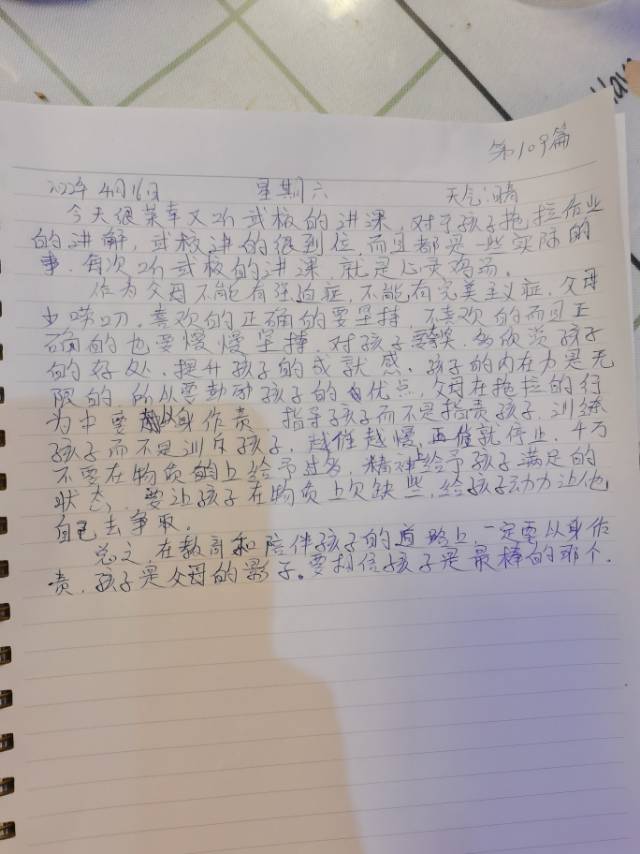 第109篇
2022年4月16日 星期六 天气:晴
今天很荣幸又听武校的讲课,对于孩子拖拉作业
的讲解,武校讲的很到位,而且都是一些实际的
事,每次听武校的讲课,就是心灵鸡汤。
作为父母不能有强迫症,不能有完美主义症,父母
少唠叨,喜欢的正确的要坚持,不喜欢的而且正
确的也要慢慢坚持,对孩子要奖,多欣赏孩子
的好处,提升孩子的成就感,孩子的内在力是无
限的,所以要鼓励孩子的优点,父母在拖拉的行
为中要以身作责,指导孩子而不是指责孩子,训练
孩子而不是训斥孩子,越催越慢,再催就停止,千万
不要在物质的上给予过多,精神上给予孩子满足的
状态,要让孩子在物质上欠缺些,给孩子动力让他
自己去争取。
总之,在教育和陪伴孩子的道路上,一定要以身作
责,孩子是父母的影子。要相信孩子是最棒的那个.